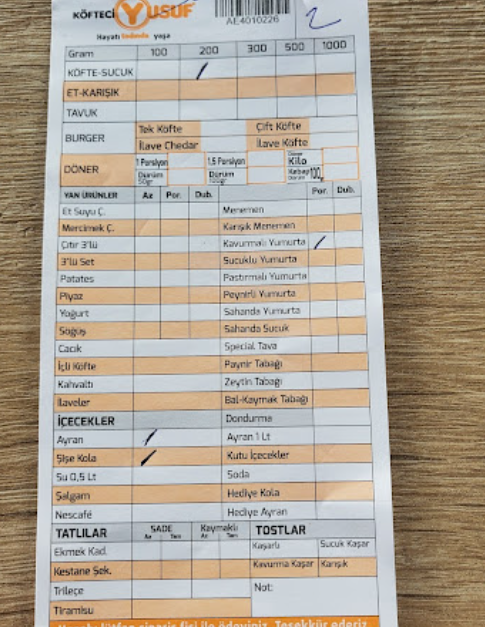 KÖFTECİ YUSUF
AE4010226
2
Hayatı tadında yaşa
Gram 100 200 300 500 1000
KÖFTE-SUCUK /
ET-KARIŞIK
TAVUK
BURGER Tek Köfte Çift Köfte
İlave Chedar İlave Köfte
DÖNER 1 Porsiyon 1.5 Porsiyon Kilo
Dürüm 50gr Dürüm 100gr
YAN ÜRÜNLER Az Por. Dub. Por. Dub.
Et Suyu Ç. Menemen
Mercimek Ç. Karışık Menemen
Çıtır 3'lü Kavurmalı Yumurta /
3'lü Set Sucuklu Yumurta
Patates Pastırmalı Yumurta
Piyaz Peynirli Yumurta
Yoğurt Sahanda Yumurta
Söğüş Sahanda Sucuk
Cacık Special Tava
İçli Köfte Peynir Tabağı
Kahvaltı Zeytin Tabağı
İlaveler Bal-Kaymak Tabağı
İÇECEKLER Dondurma
Ayran / Ayran 1 Lt
Şişe Kola / Kutu İçecekler
Su 0,5 Lt Soda
Şalgam Hediye Kola
Nescafé Hediye Ayran
TATLILAR SADE Kaymaklı TOSTLAR
Az Tam Az Tam
Ekmek Kad. Kaşarlı Sucuk Kaşar
Kestane Şek. Kavurma Kaşar Karışık
Trileçe Not:
Tiramisu
lütfen sipariş fişi ile ödeyiniz. Teşekkür ederiz